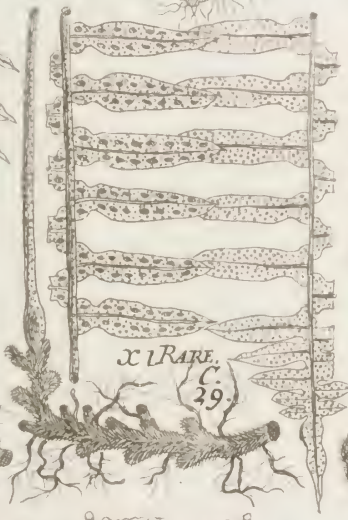 X I RARE.
C.
29.